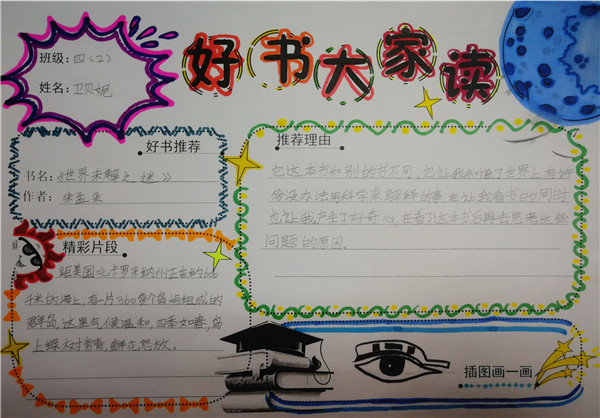 好书大家读
班级:四(2)
姓名:卫贝妮
好书推荐
书名:《世界未解之谜》
作者:
推荐理由
它这本书和别的书不同,它让我知道了世界上有许
多没办法用科学来解释的事。它让我看书的同时
也让我产生了好奇心,在看了这本书后再去思考这些
问题的原因.
精彩片段
距美国北卡罗来纳州正东约
千米的海上,有一片360多个岛屿组成的
群岛,这里气候温和,四季如春,岛
上绿树常青,鲜花怒放。
插图画一画